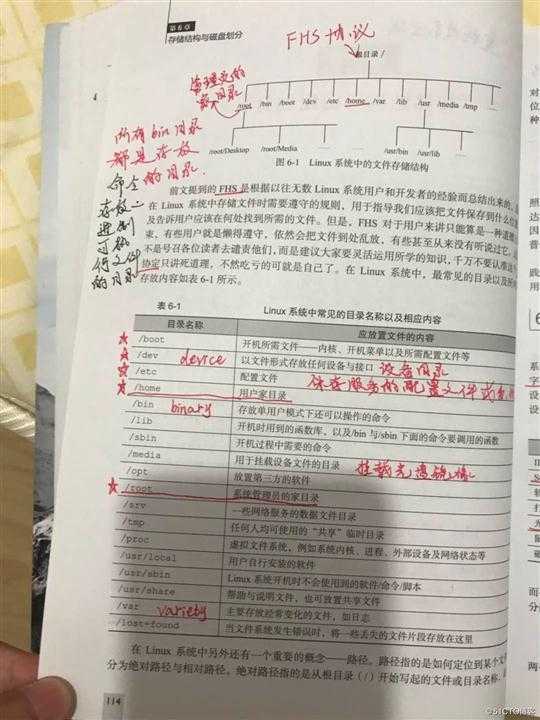 第6章
存储结构与磁盘划分
FHS 协议
根目录 /
管理员的
家目录
/root /bin /boot /dev /etc /home /var /lib /usr /media /tmp ……
/root/Desktop /root/Media …… /usr/bin /usr/lib ……
图 6-1 Linux 系统中的文件存储结构
所有bin目录
都是存放
命令的目录.
存放二
进制
可执
行文件
的目录
前文提到的 FHS 是根据以往无数 Linux 系统用户和开发者的经验而总结出来的,
在 Linux 系统中存储文件时需要遵守的规则,用于指导我们应该把文件保存到什么位
及告诉用户应该在何处找到所需的文件。但是,FHS 对于用户来讲只能算是一种道德
束,有些用户就是懒得遵守,依然会把文件到处乱放,有些甚至从来没有听说过它。
不是号召各位读者去谴责他们,而是建议大家要灵活运用所学的知识,千万不要认准这
协定只讲死道理,不然吃亏的可就是自己了。在 Linux 系统中,最常见的目录以及所
存放内容如表 6-1 所示。
表 6-1 Linux 系统中常见的目录名称以及相应内容
目录名称 应放置文件的内容
/boot 开机所需文件——内核、开机菜单以及所需配置文件等
/dev device 以文件形式存放任何设备与接口 设备目录
/etc 配置文件 保存服务的配置文件
/home 用户家目录
/bin binary 存放单用户模式下还可以操作的命令
/lib 开机时用到的函数库,以及/bin 与/sbin 下面的命令要调用的函数
/sbin 开机过程中需要的命令
/media 用于挂载设备文件的目录 挂载光盘镜像
/opt 放置第三方的软件
/root 系统管理员的家目录
/srv 一些网络服务的数据文件目录
/tmp 任何人均可使用的“共享”临时目录
/proc 虚拟文件系统,例如系统内核、进程、外部设备及网络状态等
/usr/local 用户自行安装的软件
/usr/sbin Linux 系统开机时不会使用到的软件/命令/脚本
/usr/share 帮助与说明文件,也可放置共享文件
/var variety 主要存放经常变化的文件,如日志
/lost+found 当文件系统发生错误时,将一些丢失的文件片段存放在这里
在 Linux 系统中另外还有一个重要的概念——路径。路径指的是如何定位到某个文
分为绝对路径与相对路径。绝对路径指的是从根目录(/)开始写起的文件或目录名称,
114
©51CTO博客